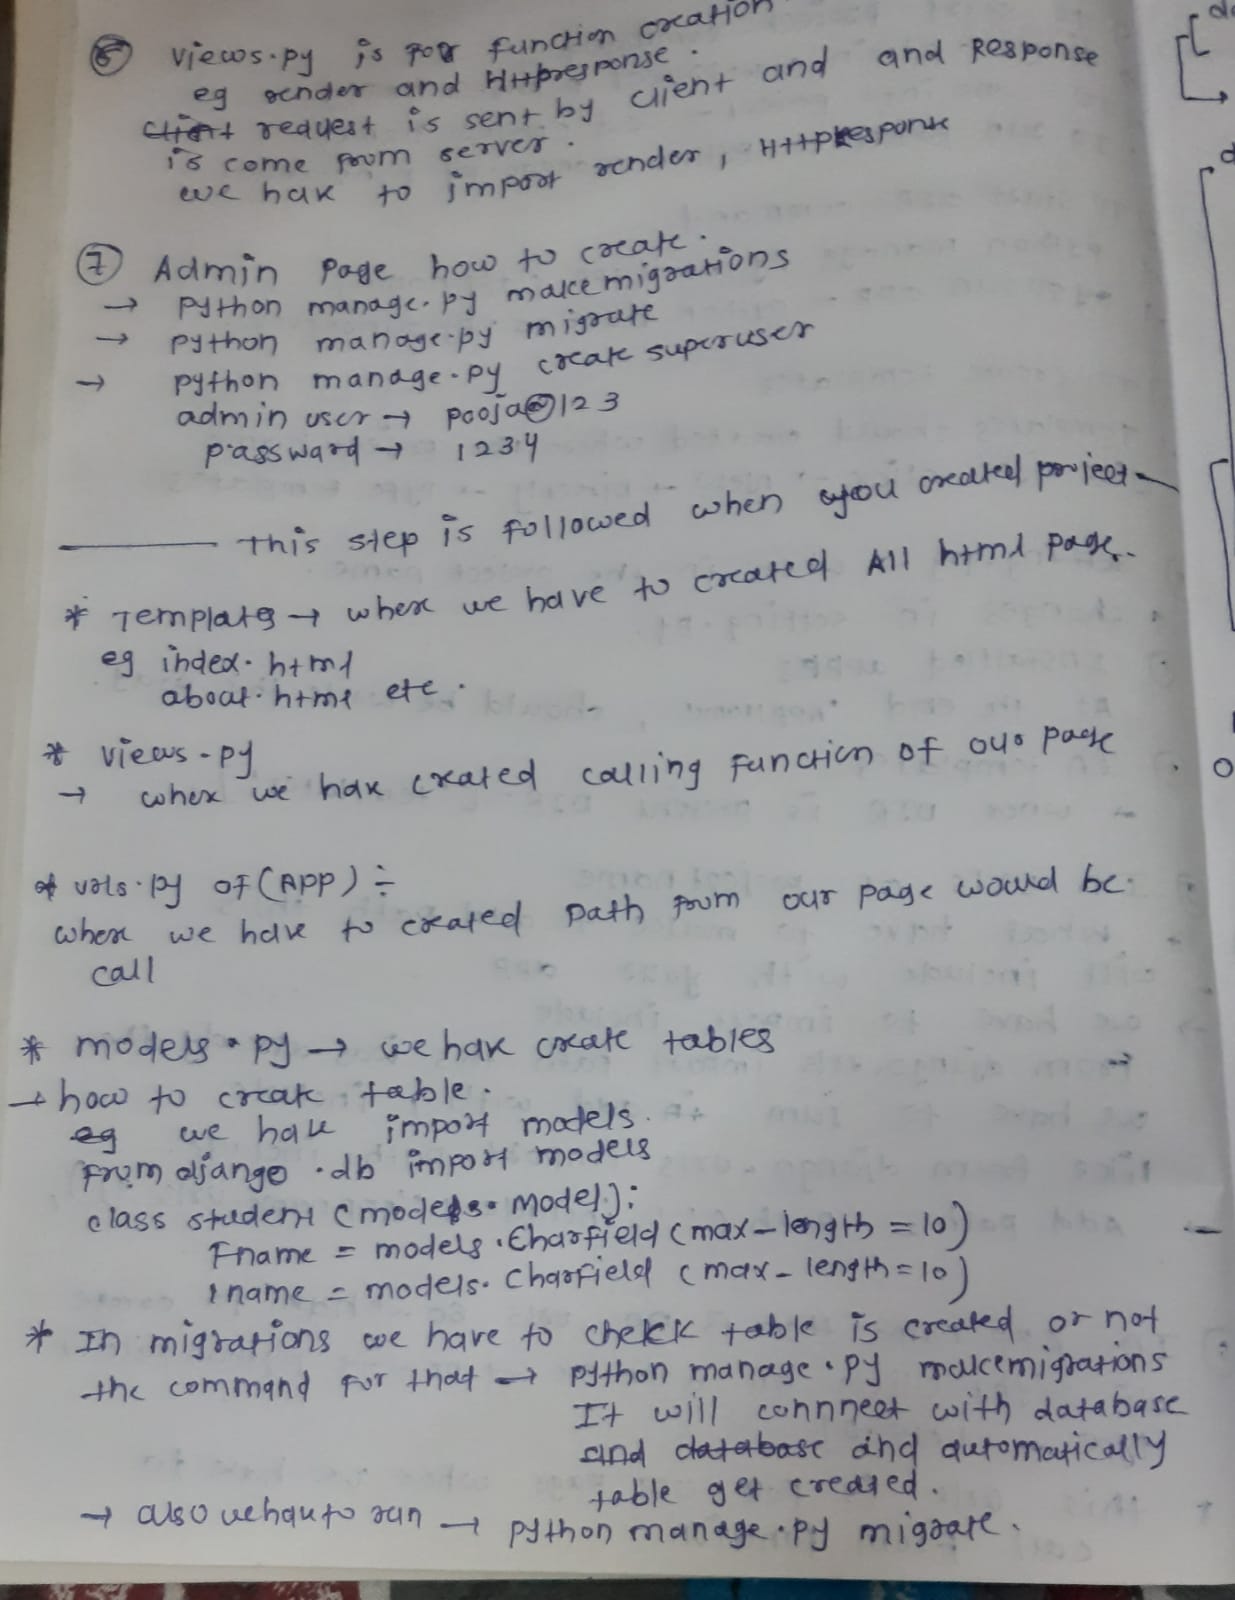 ⑥ views.py is for function creation
eg render and Httpresponse.
client request is sent by client and and Response
is come from server.
we have to import render, Httpresponse
⑦ Admin Page how to create.
→ python manage.py makemigrations
→ python manage.py migrate
→ python manage.py create superuser
admin user → pooja@123
passward → 1234
this step is followed when you created project
* Templates → where we have to created All html page.
eg index.html
about.html etc.
* views.py
→ where we have created calling function of our page
* urls.py of (APP) ÷
where we have to created path from our page would be
call
* models.py → we have create tables
→ how to create table.
eg we have import models.
From django.db import models
class student (models.model):
Fname = models.Charfield (max_length = 10)
lname = models.Charfield (max_length = 10)
* In migrations we have to chekk table is created or not
the command for that → python manage.py makemigrations
It will connneet with database
and database and automatically
table get created.
→ also we have to run → python manage.py migrate.